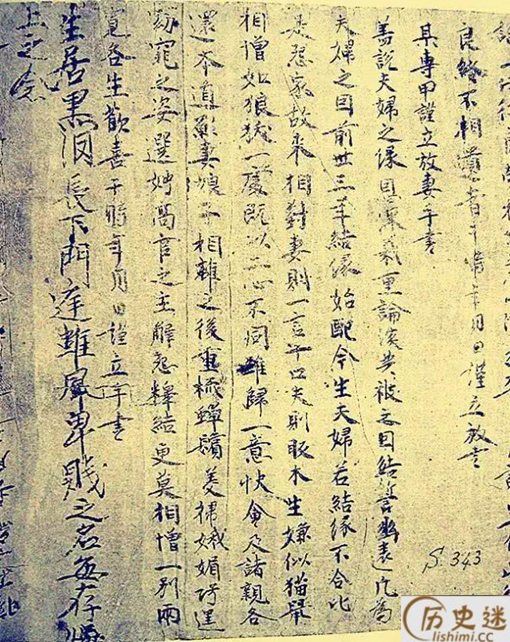 不相
于時年月日謹立放書
某專甲謹立放妻手書
蓋說夫婦之緣恩深義重論談共被之因結誓幽遠凡為
夫婦之因前世三年結緣始配今生夫婦若結緣不合比
是怨家故來相對妻則一言十口夫則販木生嫌似猫鼠
相憎如狼狄一處既以二心不同難歸一意快會及諸親各
還本道願妻娘子相離之後重梳蟬鬢美掃娥媚巧逞
窈窕之姿選娉高官之主解怨釋結更莫相憎一別兩
寬各生歡喜于時年月日謹立手書
生居黑長下門庭雖卑賤之名每存
上之念
S.343
历史迷
lishimi.cc